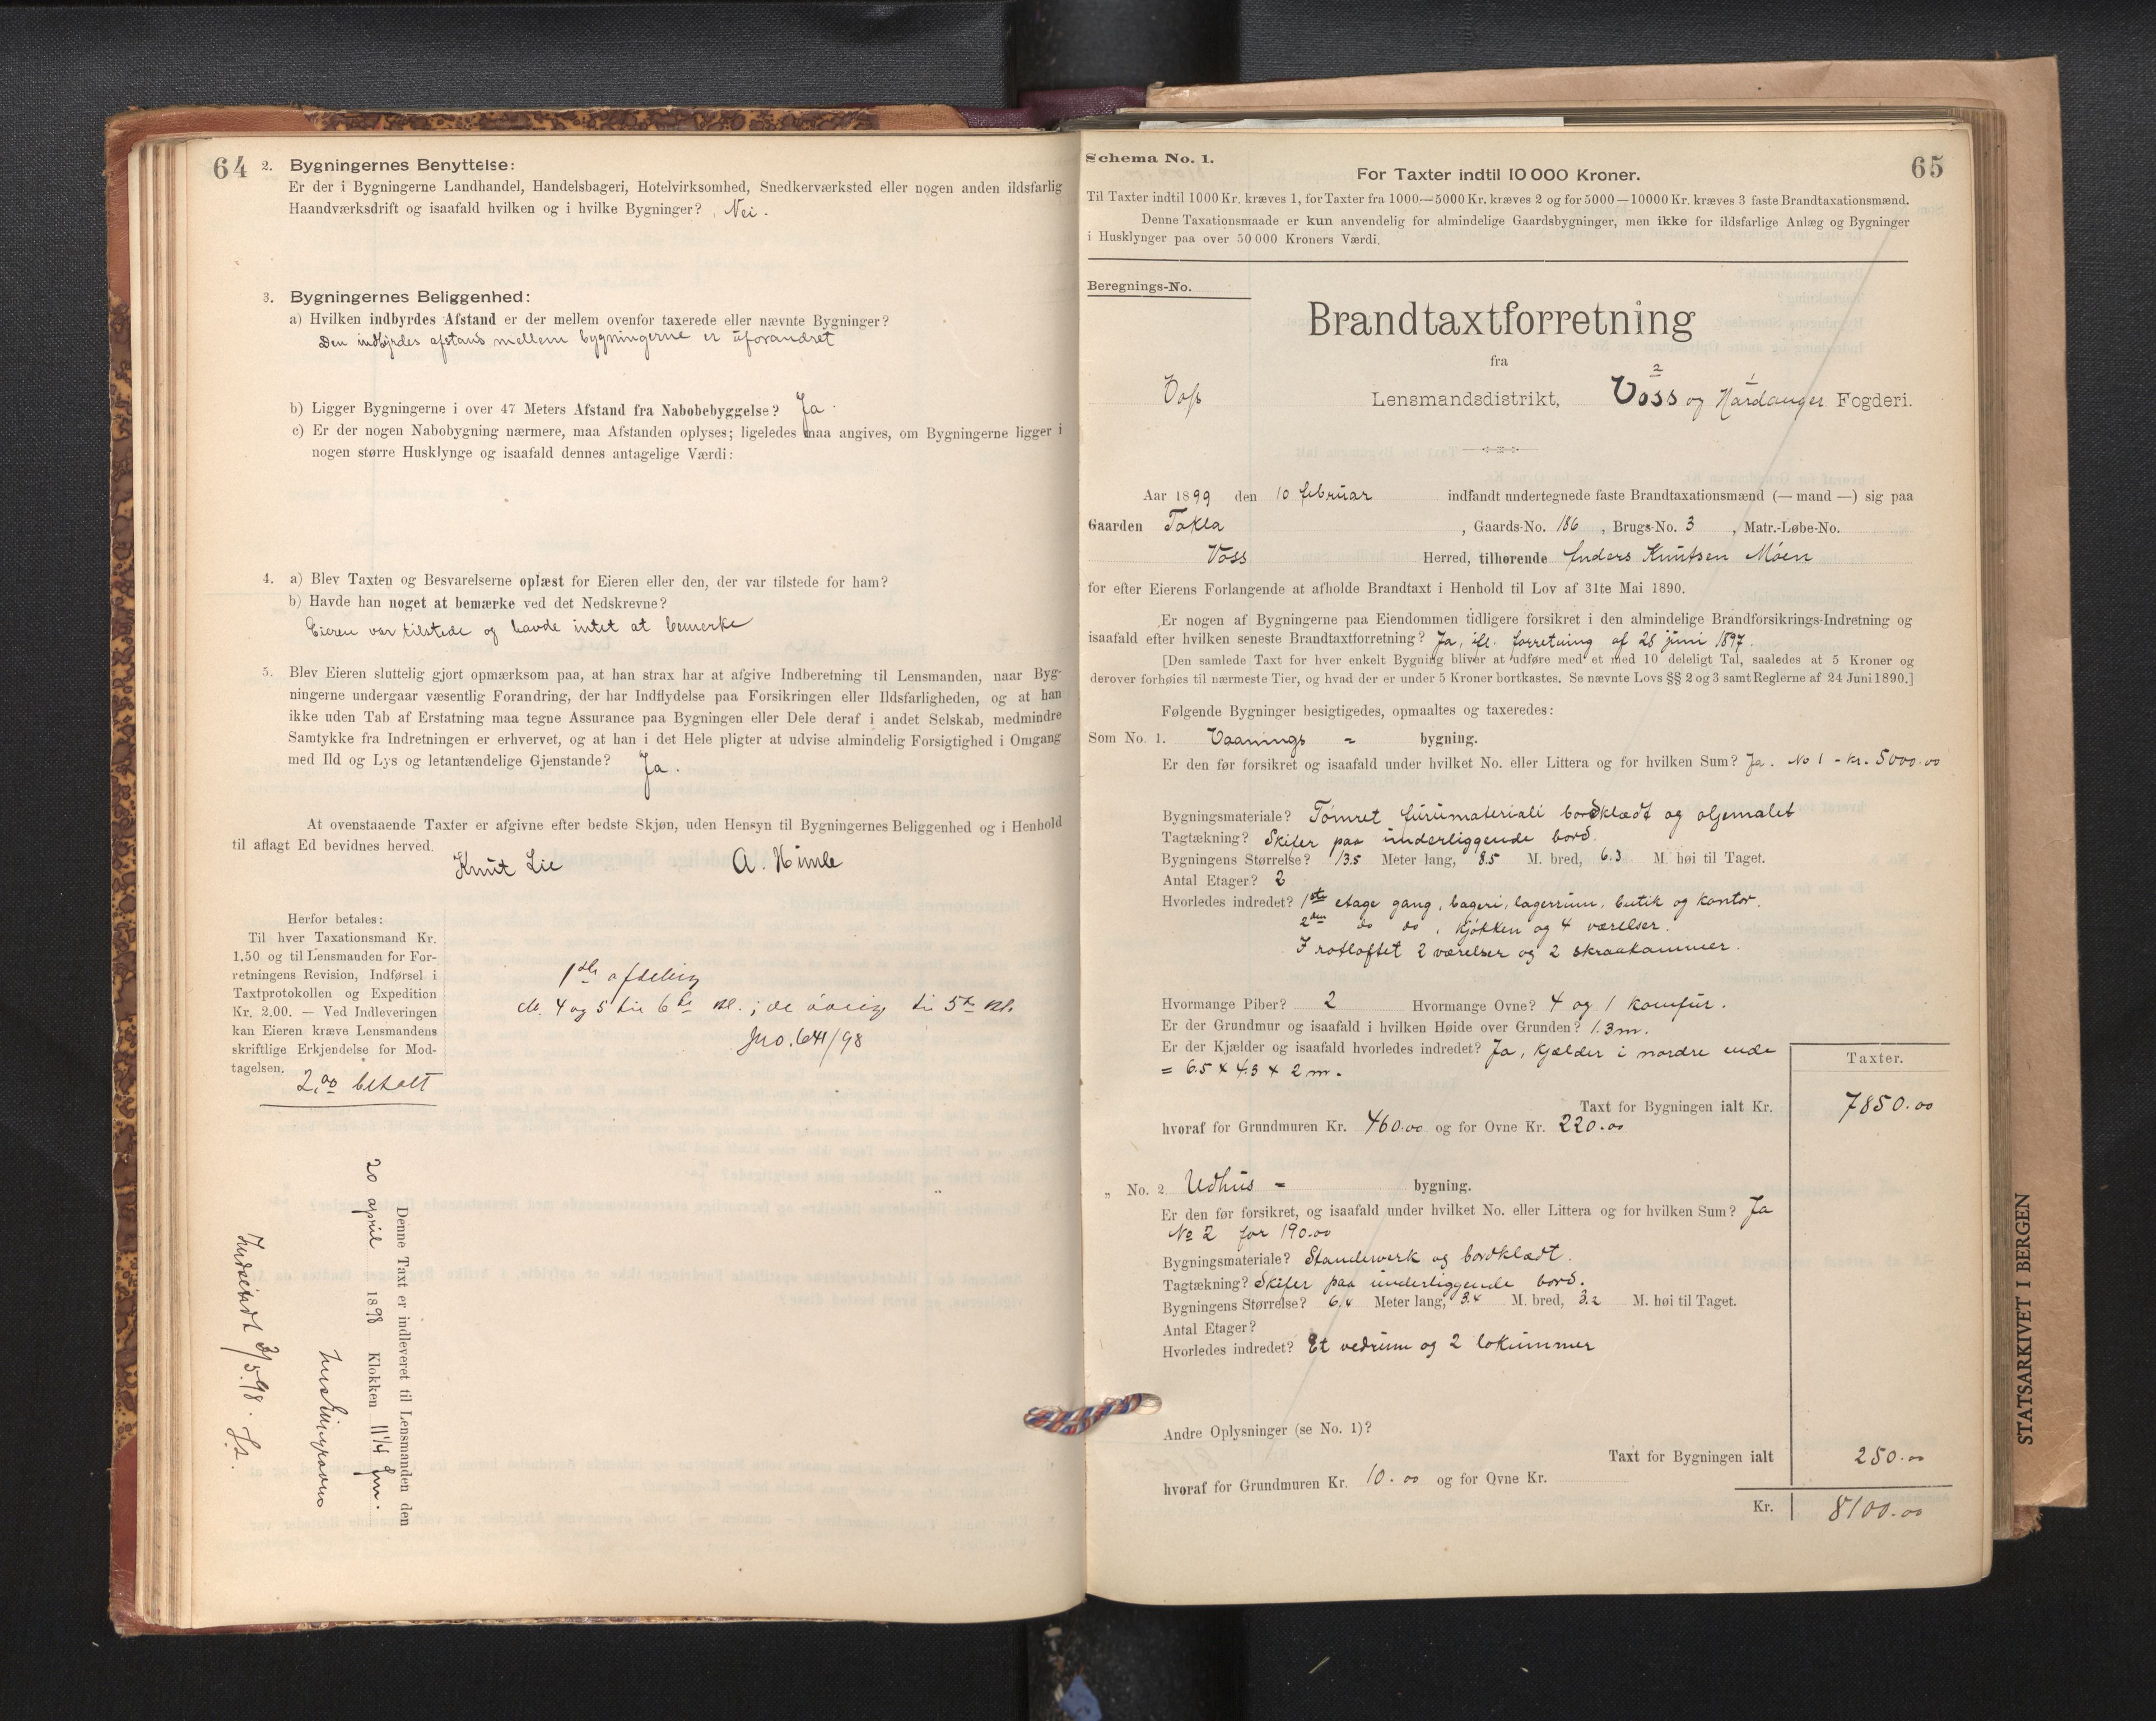 64
2. Bygningernes Benyttelse:
Er der i Bygningerne Landhandel, Handelsbageri, Hotelvirksomhed, Snedkerværksted eller nogen anden ildsfarlig
Haandværksdrift og isaafald hvilken og i hvilke Bygninger? Nei.
3. Bygningernes Beliggenhed:
a) Hvilken indbyrdes Afstand er der mellem ovenfor taxerede eller nævnte Bygninger?
Den indbyrdes afstand mellem bygningerne er uforandret
b) Ligger Bygningerne i over 47 Meters Afstand fra Nabobebyggelse? Ja.
c) Er der nogen Nabobygning nærmere, maa Afstanden oplyses; ligeledes maa angives, om Bygningerne ligger i
nogen større Husklynge og isaafald dennes antagelige Værdi:
4. a) Blev Taxten og Besvarelserne oplæst for Eieren eller den, der var tilstede for ham?
b) Havde han noget at bemærke ved det Nedskrevne?
Eieren var tilstede og havde intet at bemerke
5. Blev Eieren sluttelig gjort opmærksom paa, at han strax har at afgive Indberetning til Lensmanden, naar Byg-
ningerne undergaar væsentlig Forandring, der har Indflydelse paa Forsikringen eller Ildsfarligheden, og at han
ikke uden Tab af Erstatning maa tegne Assurance paa Bygningen eller Dele deraf i andet Selskab, medmindre
Samtykke fra Indretningen er erhvervet, og at han i det Hele pligter at udvise almindelig Forsigtighed i Omgang
med Ild og Lys og letantændelige Gjenstande? Ja.
At ovenstaaende Taxter er afgivne efter bedste Skjøn, uden Hensyn til Bygningernes Beliggenhed og i Henhold
til aflagt Ed bevidnes herved.
Knut Lie A. Himle
Herfor betales:
Til hver Taxationsmand Kr.
1.50 og til Lensmanden for For-
retningens Revision, Indførsel i
Taxtprotokollen og Expedition
Kr. 2.00. — Ved Indleveringen
kan Eieren kræve Lensmandens
skriftlige Erkjendelse for Mod-
tagelsen.
2,00 betalt
1ste afdeling
4 og 5 6te Kl.; de øvrige 5te Kl.
Jno. 641/98
Denne Taxt er indleveret til Lensmanden den
20 april 1898 Klokken 11 1/4 fm.
5.98.
Schema No. 1.
65
For Taxter indtil 10 000 Kroner.
Til Taxter indtil 1000 Kr. kræves 1, for Taxter fra 1000—5000 Kr. kræves 2 og for 5000—10000 Kr. kræves 3 faste Brandtaxationsmænd.
Denne Taxationsmaade er kun anvendelig for almindelige Gaardsbygninger, men ikke for ildsfarlige Anlæg og Bygninger
i Husklynger paa over 50 000 Kroners Værdi.
Beregnings-No.
Brandtaxtforretning
fra
Voss Lensmandsdistrikt, 2 Voss og 1 Hardanger Fogderi.
Aar 1899 den 10 februar indfandt undertegnede faste Brandtaxationsmænd (— mand —) sig paa
Gaarden Takla, Gaards-No. 186, Brugs-No. 3, Matr.-Løbe-No.
Voss Herred, tilhørende Anders Knutsen Moen
for efter Eierens Forlangende at afholde Brandtaxt i Henhold til Lov af 31te Mai 1890.
Er nogen af Bygningerne paa Eiendommen tidligere forsikret i den almindelige Brandforsikrings-Indretning og
isaafald efter hvilken seneste Brandtaxtforretning? Ja, ifl. forretning af 28 juni 1897.
[Den samlede Taxt for hver enkelt Bygning bliver at udføre med et med 10 deleligt Tal, saaledes at 5 Kroner og
derover forhøies til nærmeste Tier, og hvad der er under 5 Kroner bortkastes. Se nævnte Lovs §§ 2 og 3 samt Reglerne af 24 Juni 1890.]
Følgende Bygninger besigtigedes, opmaaltes og taxeredes:
Som No. 1. Vaanings = bygning.
Er den før forsikret og isaafald under hvilket No. eller Littera og for hvilken Sum? Ja. No 1 - Kr. 5000.00
Bygningsmateriale? Tømret furumateriali bordklædt og oljemalet
Tagtækning? Skifer paa underliggende bord.
Bygningens Størrelse? 13.5 Meter lang, 8.5 M. bred, 6.3 M. høi til Taget.
Antal Etager? 2
Hvorledes indredet? 1ste etage gang, bageri, lagerrum, butik og kontor.
2den do do, kjøkken og 4 værelser.
I rotloftet 2 værelser og 2 skraakammer.
Hvormange Piber? 2 Hvormange Ovne? 4 og 1 komfur.
Er der Grundmur og isaafald i hvilken Høide over Grunden? 1.3 m.
Er der Kjælder og isaafald hvorledes indredet? Ja, kjælder i nordre ende
= 6.5 x 4.3 x 2 m.
Taxter.
Taxt for Bygningen ialt Kr. 7850.00
hvoraf for Grundmuren Kr. 460.00 og for Ovne Kr. 220.00
„ No. 2 Udhus = bygning.
Er den før forsikret, og isaafald under hvilket No. eller Littera og for hvilken Sum? Ja
No 2 for 190.00
Bygningsmateriale? Standewerk og bordklædt.
Tagtækning? Skifer paa underliggende bord.
Bygningens Størrelse? 6.4 Meter lang, 3.4 M. bred, 3.2 M. høi til Taget.
Antal Etager?
Hvorledes indredet? Et vedrum og 2 lokummer
Andre Oplysninger (se No. 1)?
Taxt for Bygningen ialt 250.00
hvoraf for Grundmuren Kr. 10.00 og for Ovne Kr.
Kr. 8100.00
STATSARKIVET I BERGEN